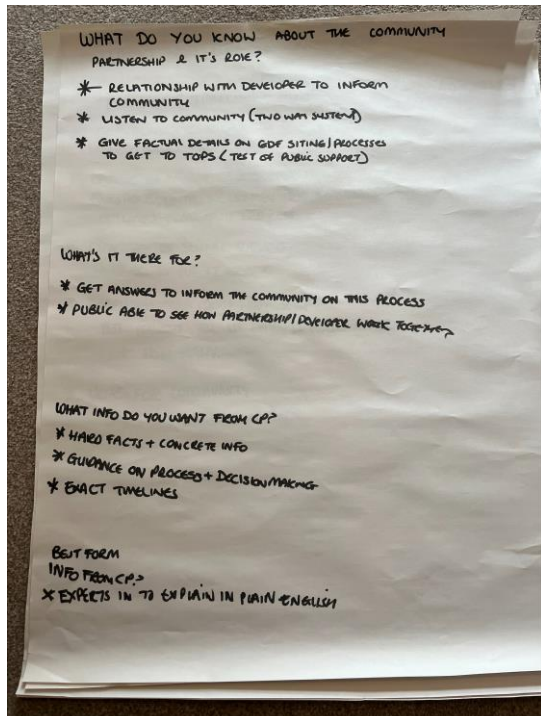 WHAT DO YOU KNOW ABOUT THE COMMUNITY
PARTNERSHIP & IT'S ROLE?
* RELATIONSHIP WITH DEVELOPER TO INFORM
COMMUNITY
* LISTEN TO COMMUNITY (TWO WAY SYSTEM)
* GIVE FACTUAL DETAILS ON GDF SITING/PROCESSES
TO GET TO TOPS (TEST OF PUBLIC SUPPORT)
WHAT'S IT THERE FOR?
* GET ANSWERS TO INFORM THE COMMUNITY ON THIS PROCESS
* PUBLIC ABLE TO SEE HOW PARTNERSHIP/DEVELOPER WORK TOGETHER
WHAT INFO DO YOU WANT FROM CP?
* HARD FACTS + CONCRETE INFO
* GUIDANCE ON PROCESS + DECISION MAKING
* EXACT TIMELINES
BEST FORM
INFO FROM CP?
* EXPERTS IN TO EXPLAIN IN PLAIN ENGLISH